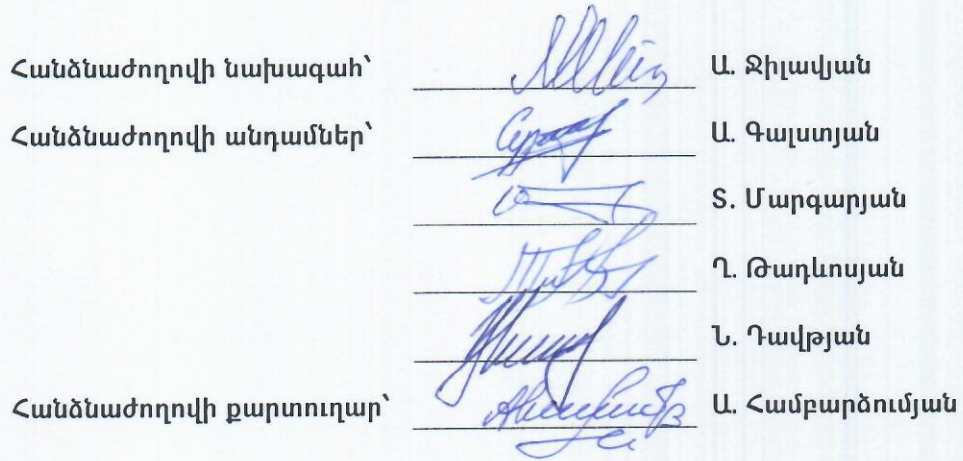 Հանձնաժողովի նախագահ՝ Ա. Ջիլավյան
Հանձնաժողովի անդամներ՝ Ա. Գալստյան
Տ. Մարգարյան
Ղ. Թադևոսյան
Ն. Դավթյան
Հանձնաժողովի քարտուղար՝ Ա. Համբարձումյան